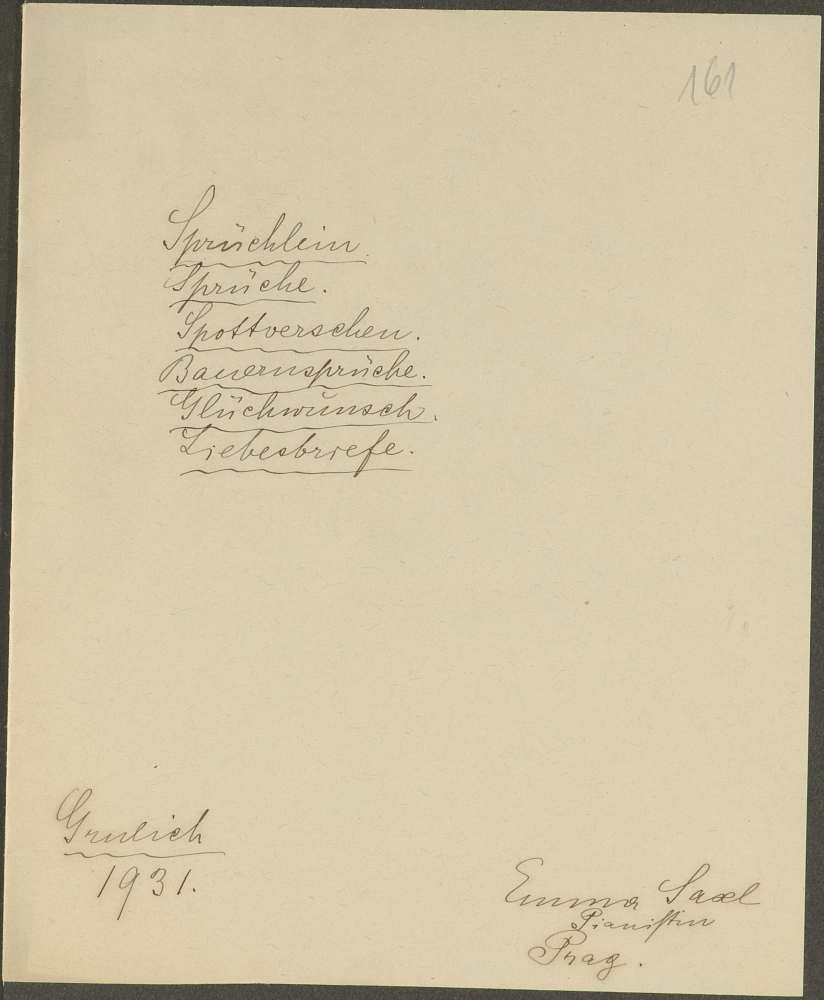 161
Sprüchlein
Sprüche.
Spottverschen.
Bauernsprüche.
Glückwunsch.
Liebesbriefe.
Grulich
1931.
Emma Saxl
Pianistin
Prag.